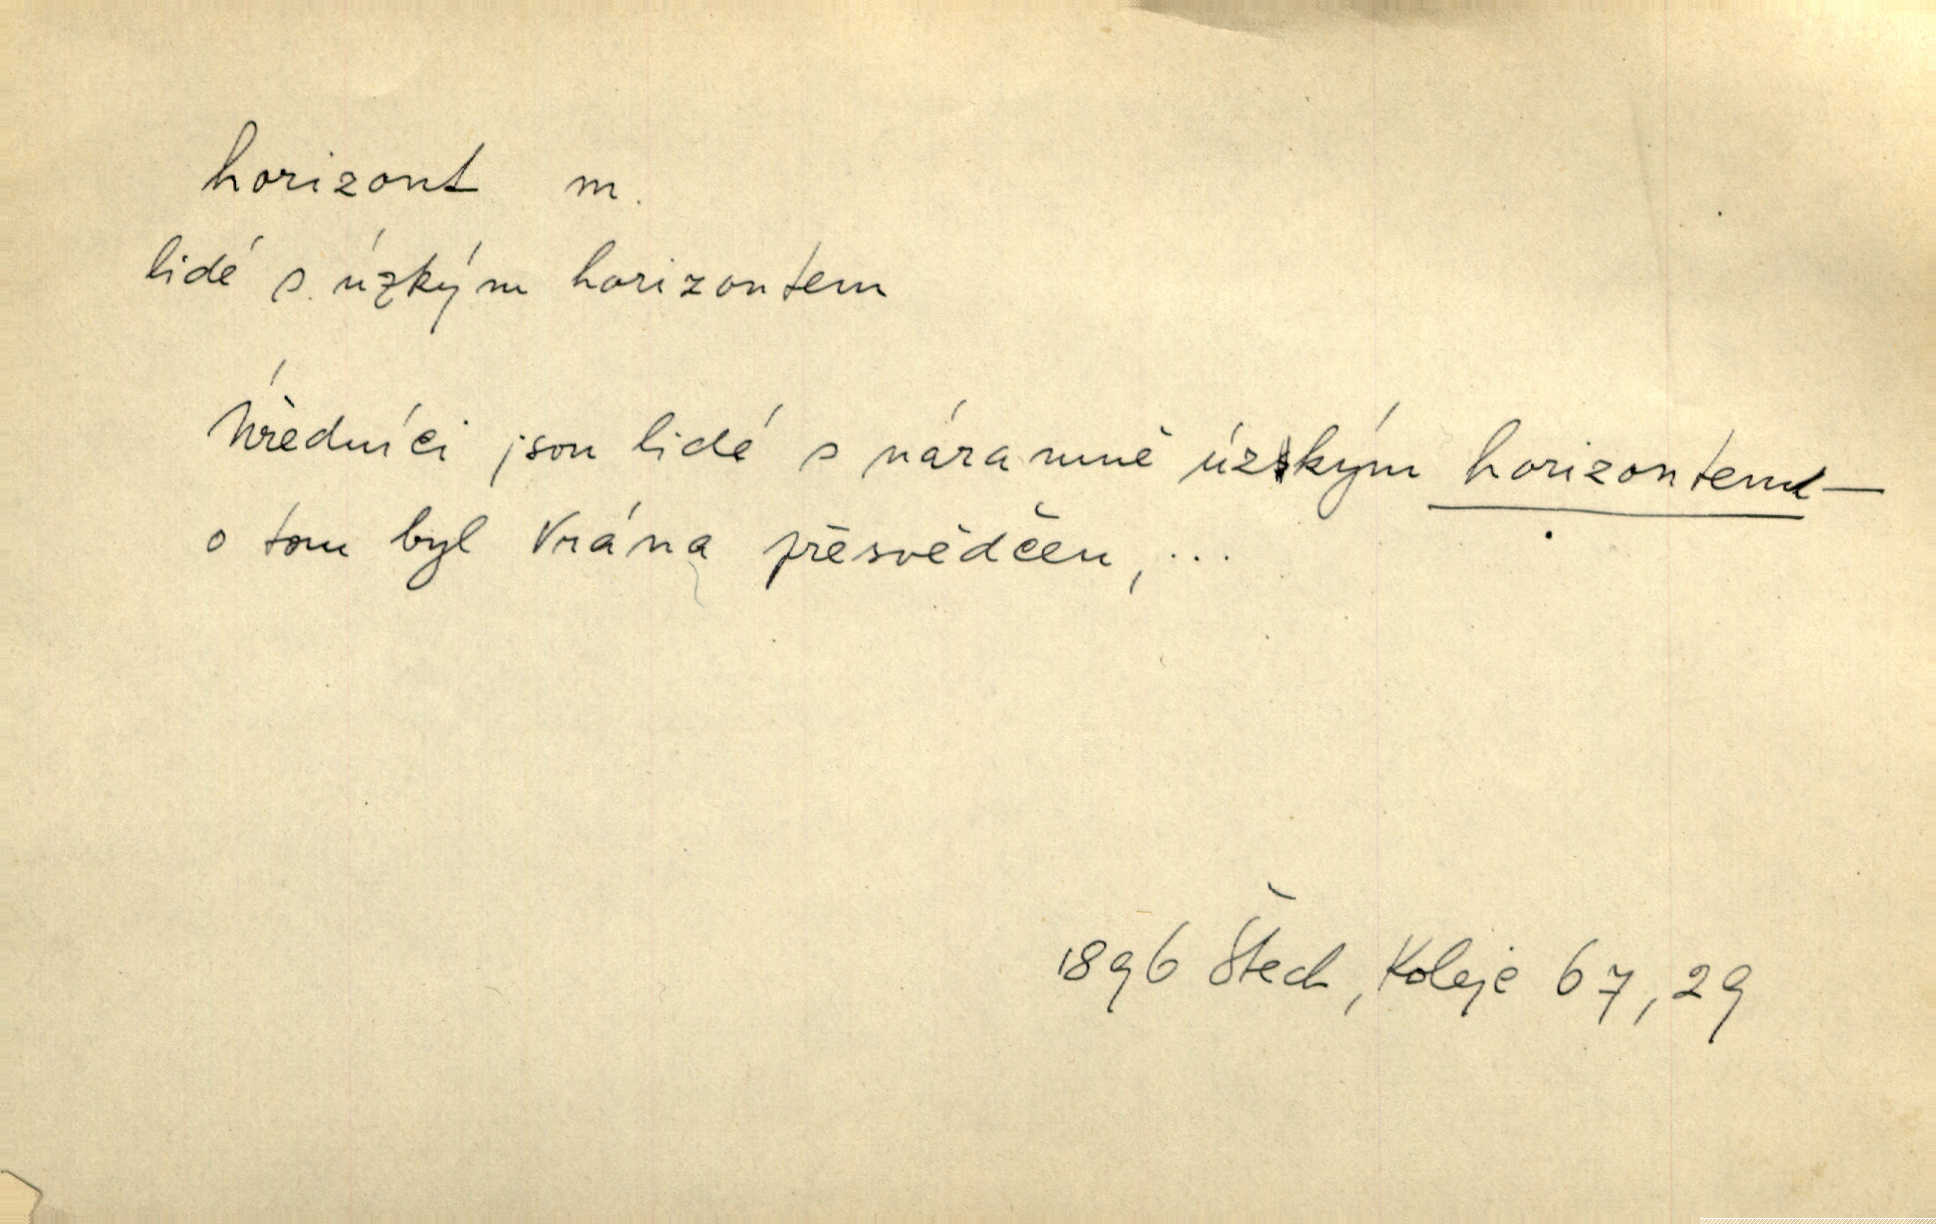 horizont m.
lidé s úzkým horizontem
Úředníci jsou lidé s náramně úzkým horizontem —
o tom byl Vrána přesvědčen, ...
1896 Štech, Koleje 67, 29